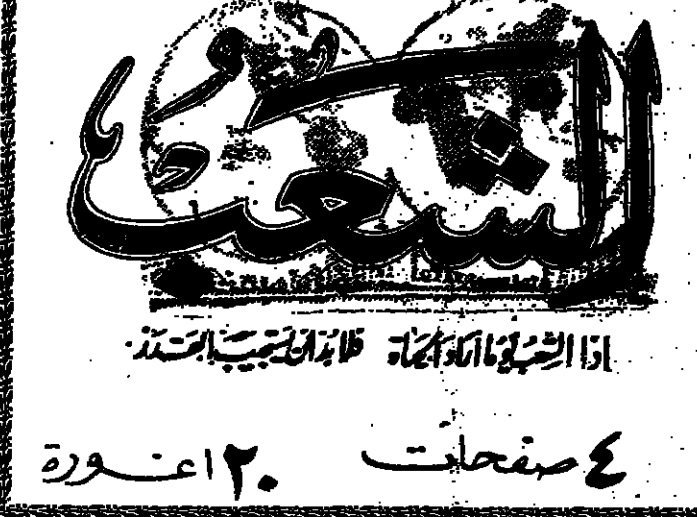 الشعب
اذا الشعب يوما اراد الحياة فلا بد ان يستجيب القدر
٤ صفحات ٢٠ اغورة